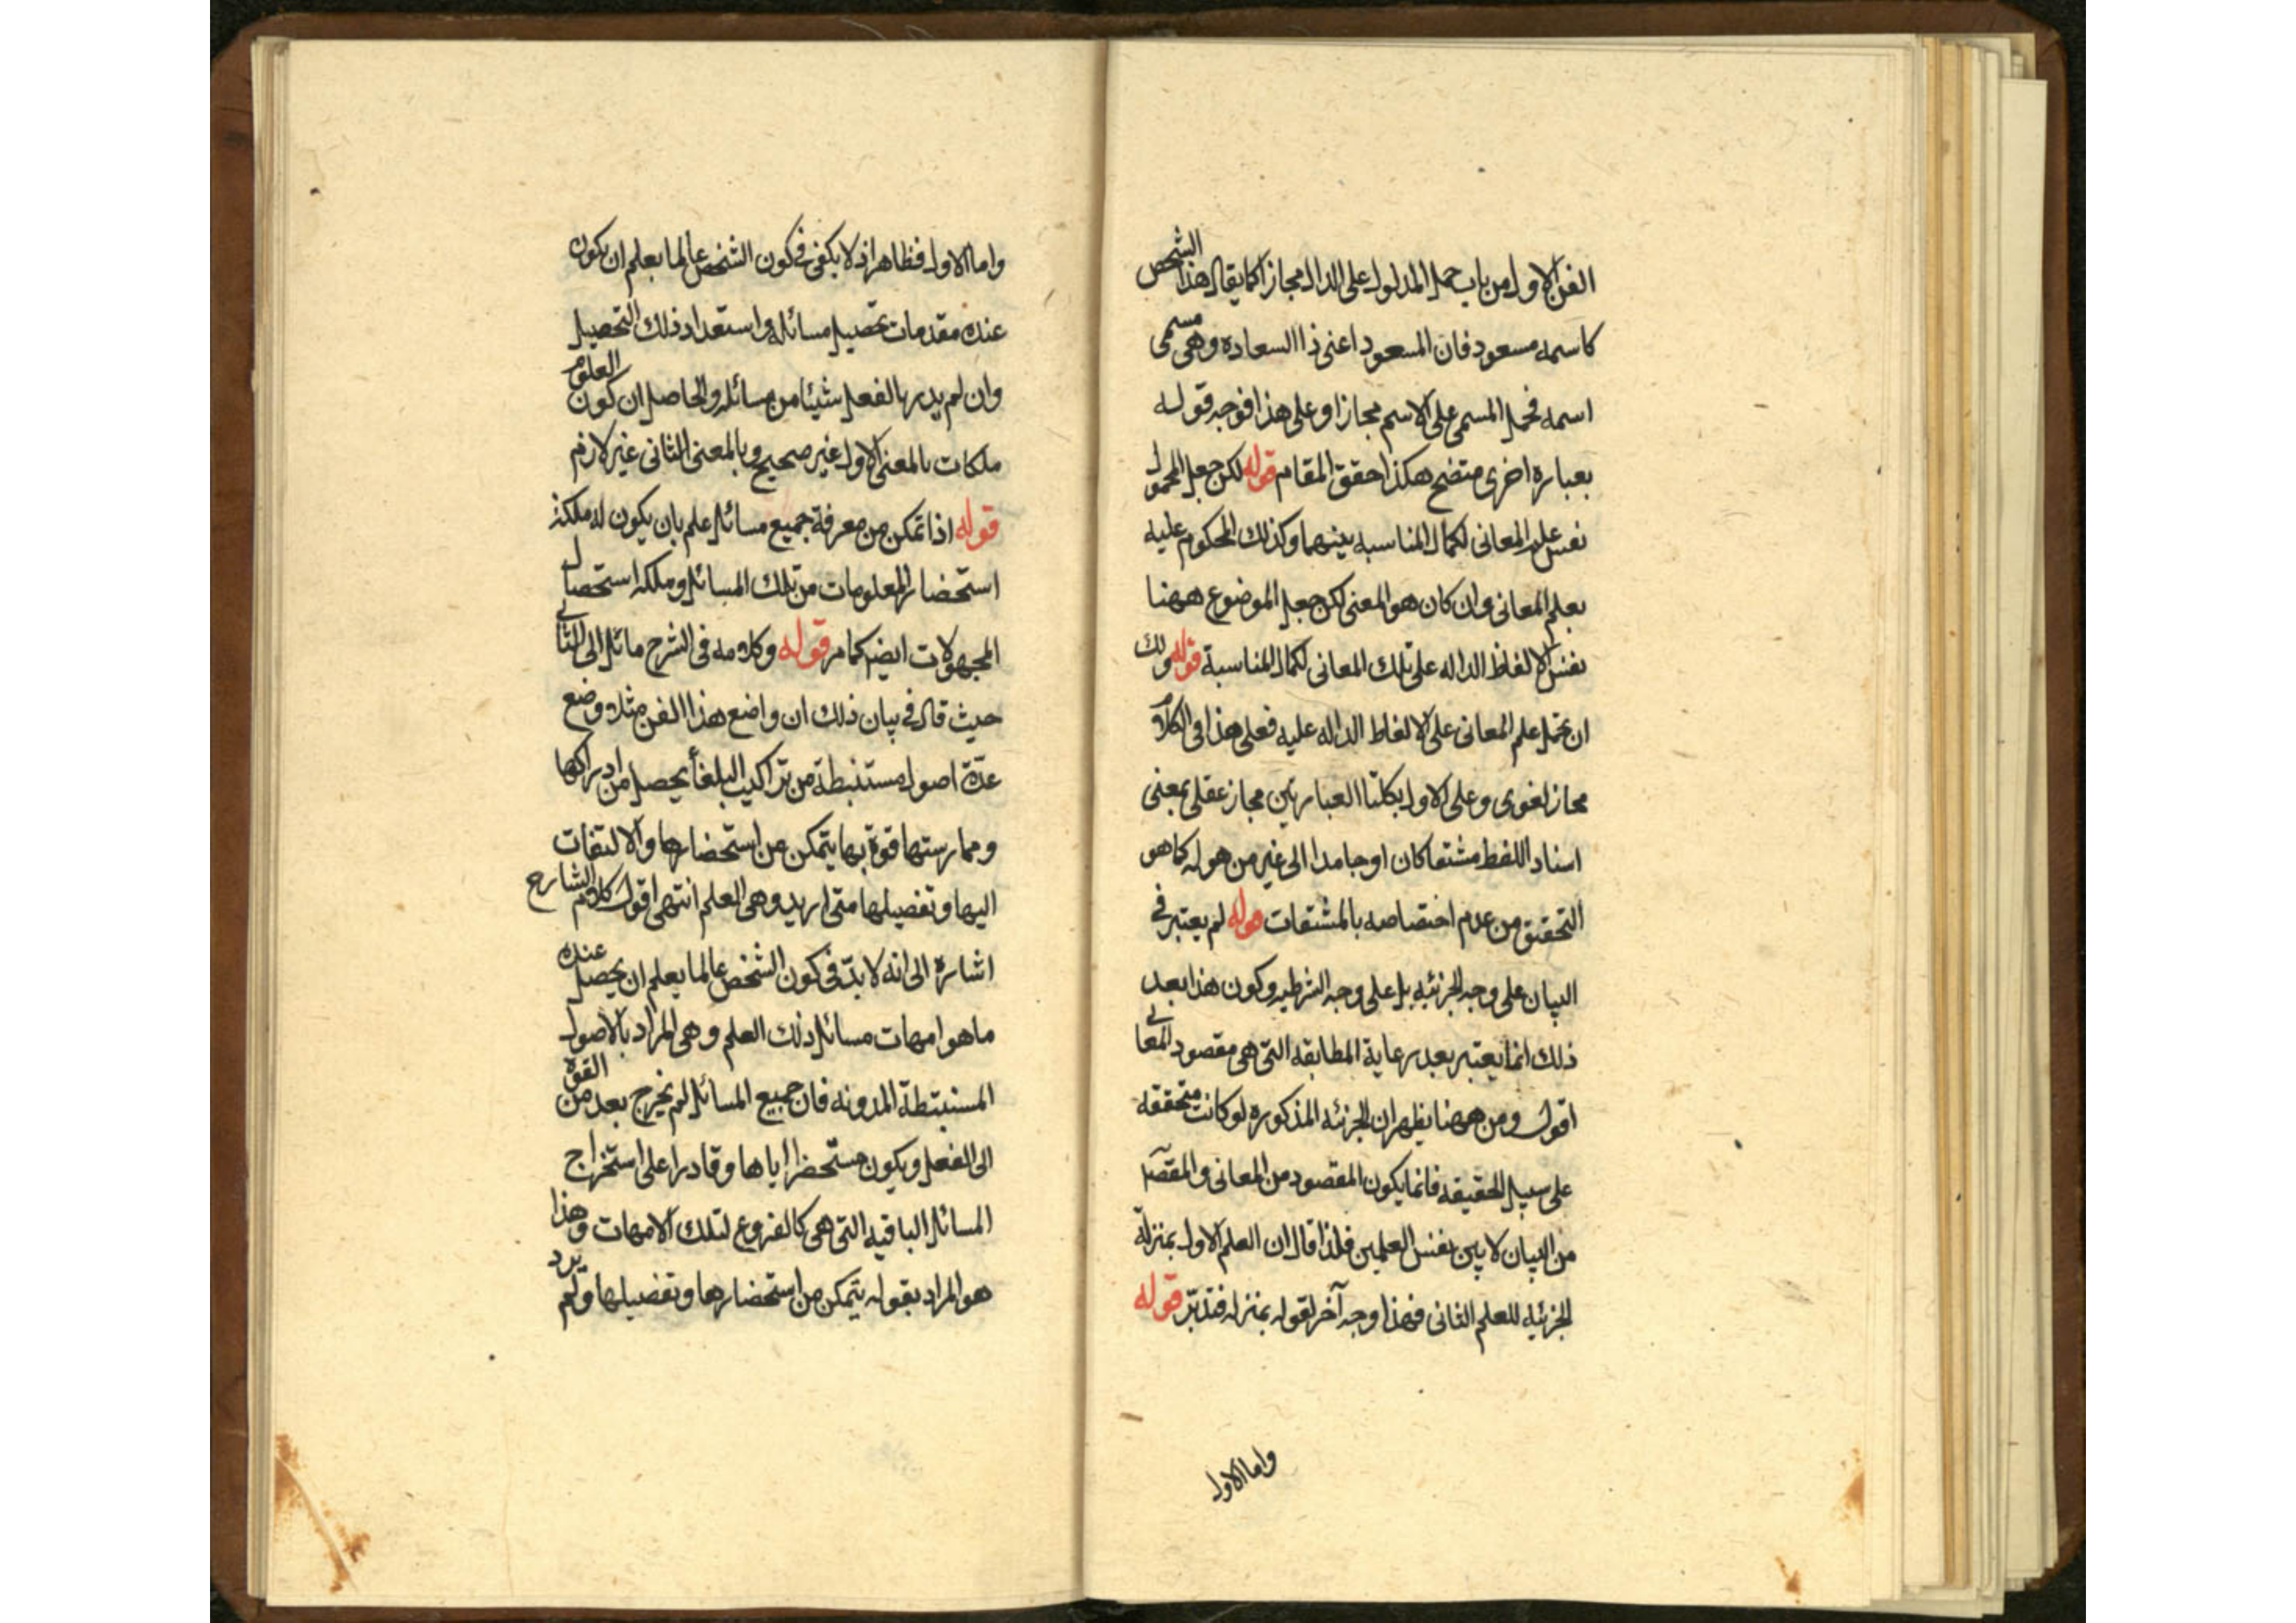 الفن الاول من باب حمل المدلول على الدال مجازا كما يقال هذا الشخص
كاسمه مسعود فان المسعود اعنى ذا السعاده وهى مسمى
اسمه فحمل المسمى على الاسم مجازا وعلى هذا فوجه قوله
بعباره اخرى متضح هكذا حقق المقام قوله لكن جعل المحمول
نفس علم المعانى لكمال المناسبه بينهما وكذلك المحكوم عليه
بعلم المعانى وان كان هو المعنى لكن جعل الموضوع ههنا
نفس الالفاظ الداله على تلك المعانى لكمال المناسبة قوله ولك
ان تحمل علم المعانى على الالفاظ الداله عليه فعلى هذا فى الكلام
مجاز لغوى وعلى الاول بكلتا العبارتين مجاز عقلى بمعنى
اسناد اللفظ مشتقا كان او جامدا الى غير من هو له كما هو
التحقيق من عدم اختصاصه بالمشتقات قوله لم يعتبر فى
البيان على وجه الجزئيه بل على وجه الشرطيه وكون هذا بعد
ذلك انما يعتبر بعد رعاية المطابقه التى هى مقصود المعانى
اقول ومن ههنا يظهر ان الجزئيه المذكوره لو كانت متحققه
على سبيل الحقيقه فانما يكون المقصود من المعانى والمقصد
من البيان لا بين نفس العلمين فلذا قال ان العلم الاول بمنزلة
الجزئيه للعلم الثانى فهذا وجه آخر لقوله بمنزله فتدبّر قوله
واما الاول
واما الاول فظاهر اذ لا يكفى فى كون الشخص عالما بعلم ان يكون
عنده مقدمات تحصيل مسائله واستعداد ذلك التحصيل
وان لم يدر بالفعل شيئا من مسائله والحاصل ان كون العلوم
ملكات بالمعنى الاول غير صحيح وبالمعنى الثانى غير لازم
قوله اذا تمكن من معرفة جميع مسائل علم بان يكون له ملكة
استحضار المعلومات من تلك المسائل وملكه استحصال
المجهولات ايضا كما مر قوله وكلامه فى الشرح مائل الى الثانى
حيث قال فى بيان ذلك ان واضع هذا الفن مثلا وضع
عدّة اصول مستنبطة من تراكيب البلغأ يحصل من ادراكها
وممارستها قوة بها يتمكن من استحضارها والالتفات
اليها وتفصيلها متى اريد وهى العلم انتهى اقول كلام الشارح
اشاره الى انه لا بدّ فى كون الشخص عالما بعلم ان يحصل عنده
ما هو امهات مسائل ذلك العلم وهى المراد بالاصول
المستنبطة المدونه فان جميع المسائل لم يخرج بعد من القوة
الى الفعل ويكون مستحضرا اياها وقادرا على استخراج
المسائل الباقيه التى هى كالفروع لتلك الامهات وهذا
هو المراد بقوله يتمكن من استحضارها وتفصيلها ولم يرد